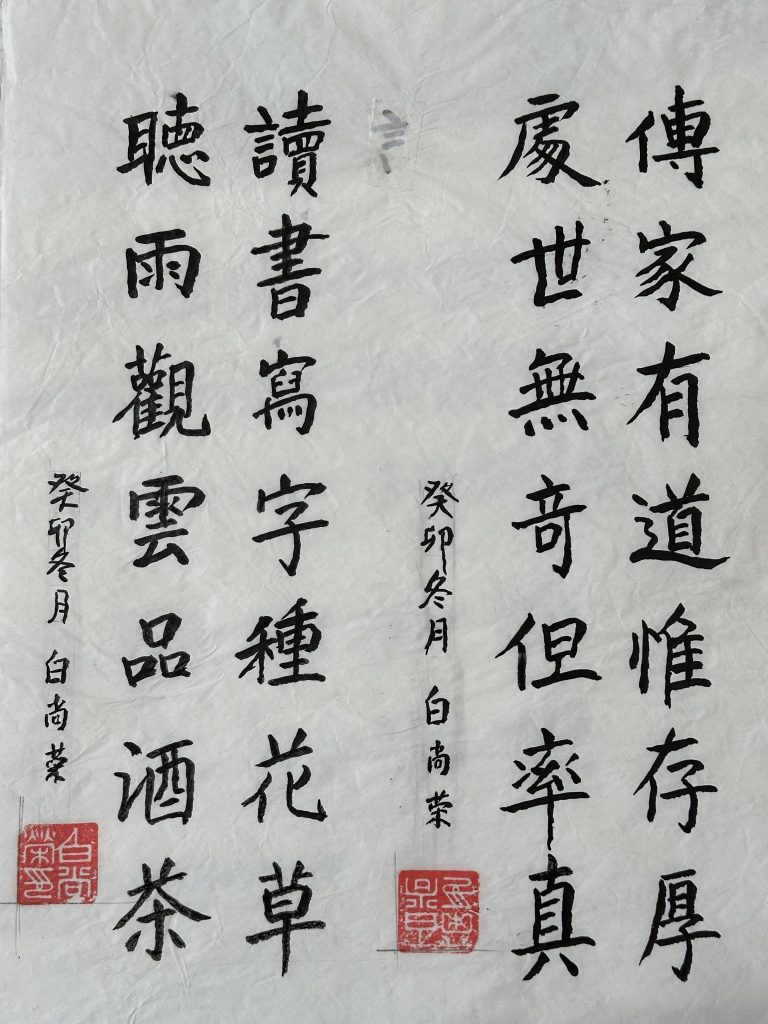 傳家有道惟存厚
處世無奇但率真
癸卯冬月 白尚榮
讀書寫字種花草
聽雨觀雲品酒茶
癸卯冬月 白尚荣
白尚榮印